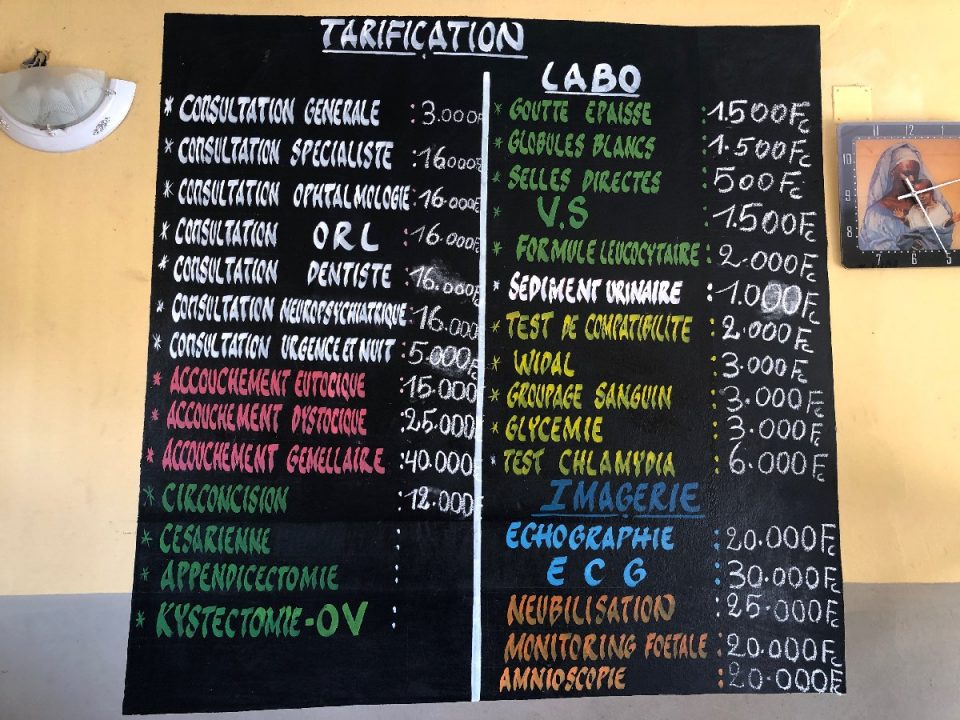 TARIFICATION
* CONSULTATION GENERALE : 3.000F
* CONSULTATION SPECIALISTE : 16.000F
* CONSULTATION OPHTALMOLOGIE : 16.000F
* CONSULTATION ORL : 16.000F
* CONSULTATION DENTISTE : 16.000F
* CONSULTATION NEUROPSYCHIATRIQUE : 16.000
* CONSULTATION URGENCE ET NUIT : 5.000F
* ACCOUCHEMENT EUTOCIQUE : 15.000
* ACCOUCHEMENT DYSTOCIQUE : 25.000
* ACCOUCHEMENT GEMELLAIRE : 40.000
* CIRCONCISION : 12.000
* CESARIENNE :
* APPENDICECTOMIE :
* KYSTECTOMIE-OV :
LABO
* GOUTTE EPAISSE : 1.500Fc
* GLOBULES BLANCS : 1.500Fc
* SELLES DIRECTES : 500Fc
* V.S : 1.500Fc
* FORMULE LEUCOCYTAIRE : 2.000Fc
* SEDIMENT URINAIRE : 1.000Fc
* TEST DE COMPATIBILITE : 2.000Fc
* WIDAL : 3.000Fc
* GROUPAGE SANGUIN : 3.000Fc
* GLYCEMIE : 3.000Fc
* TEST CHLAMYDIA : 6.000Fc
IMAGERIE
ECHOGRAPHIE : 20.000Fc
ECG : 30.000Fc
NEUBILISATION : 25.000Fc
MONITORING FOETALE : 20.000Fc
AMNIOSCOPIE : 20.000Fc
11 12
10
9
8
7 6 5